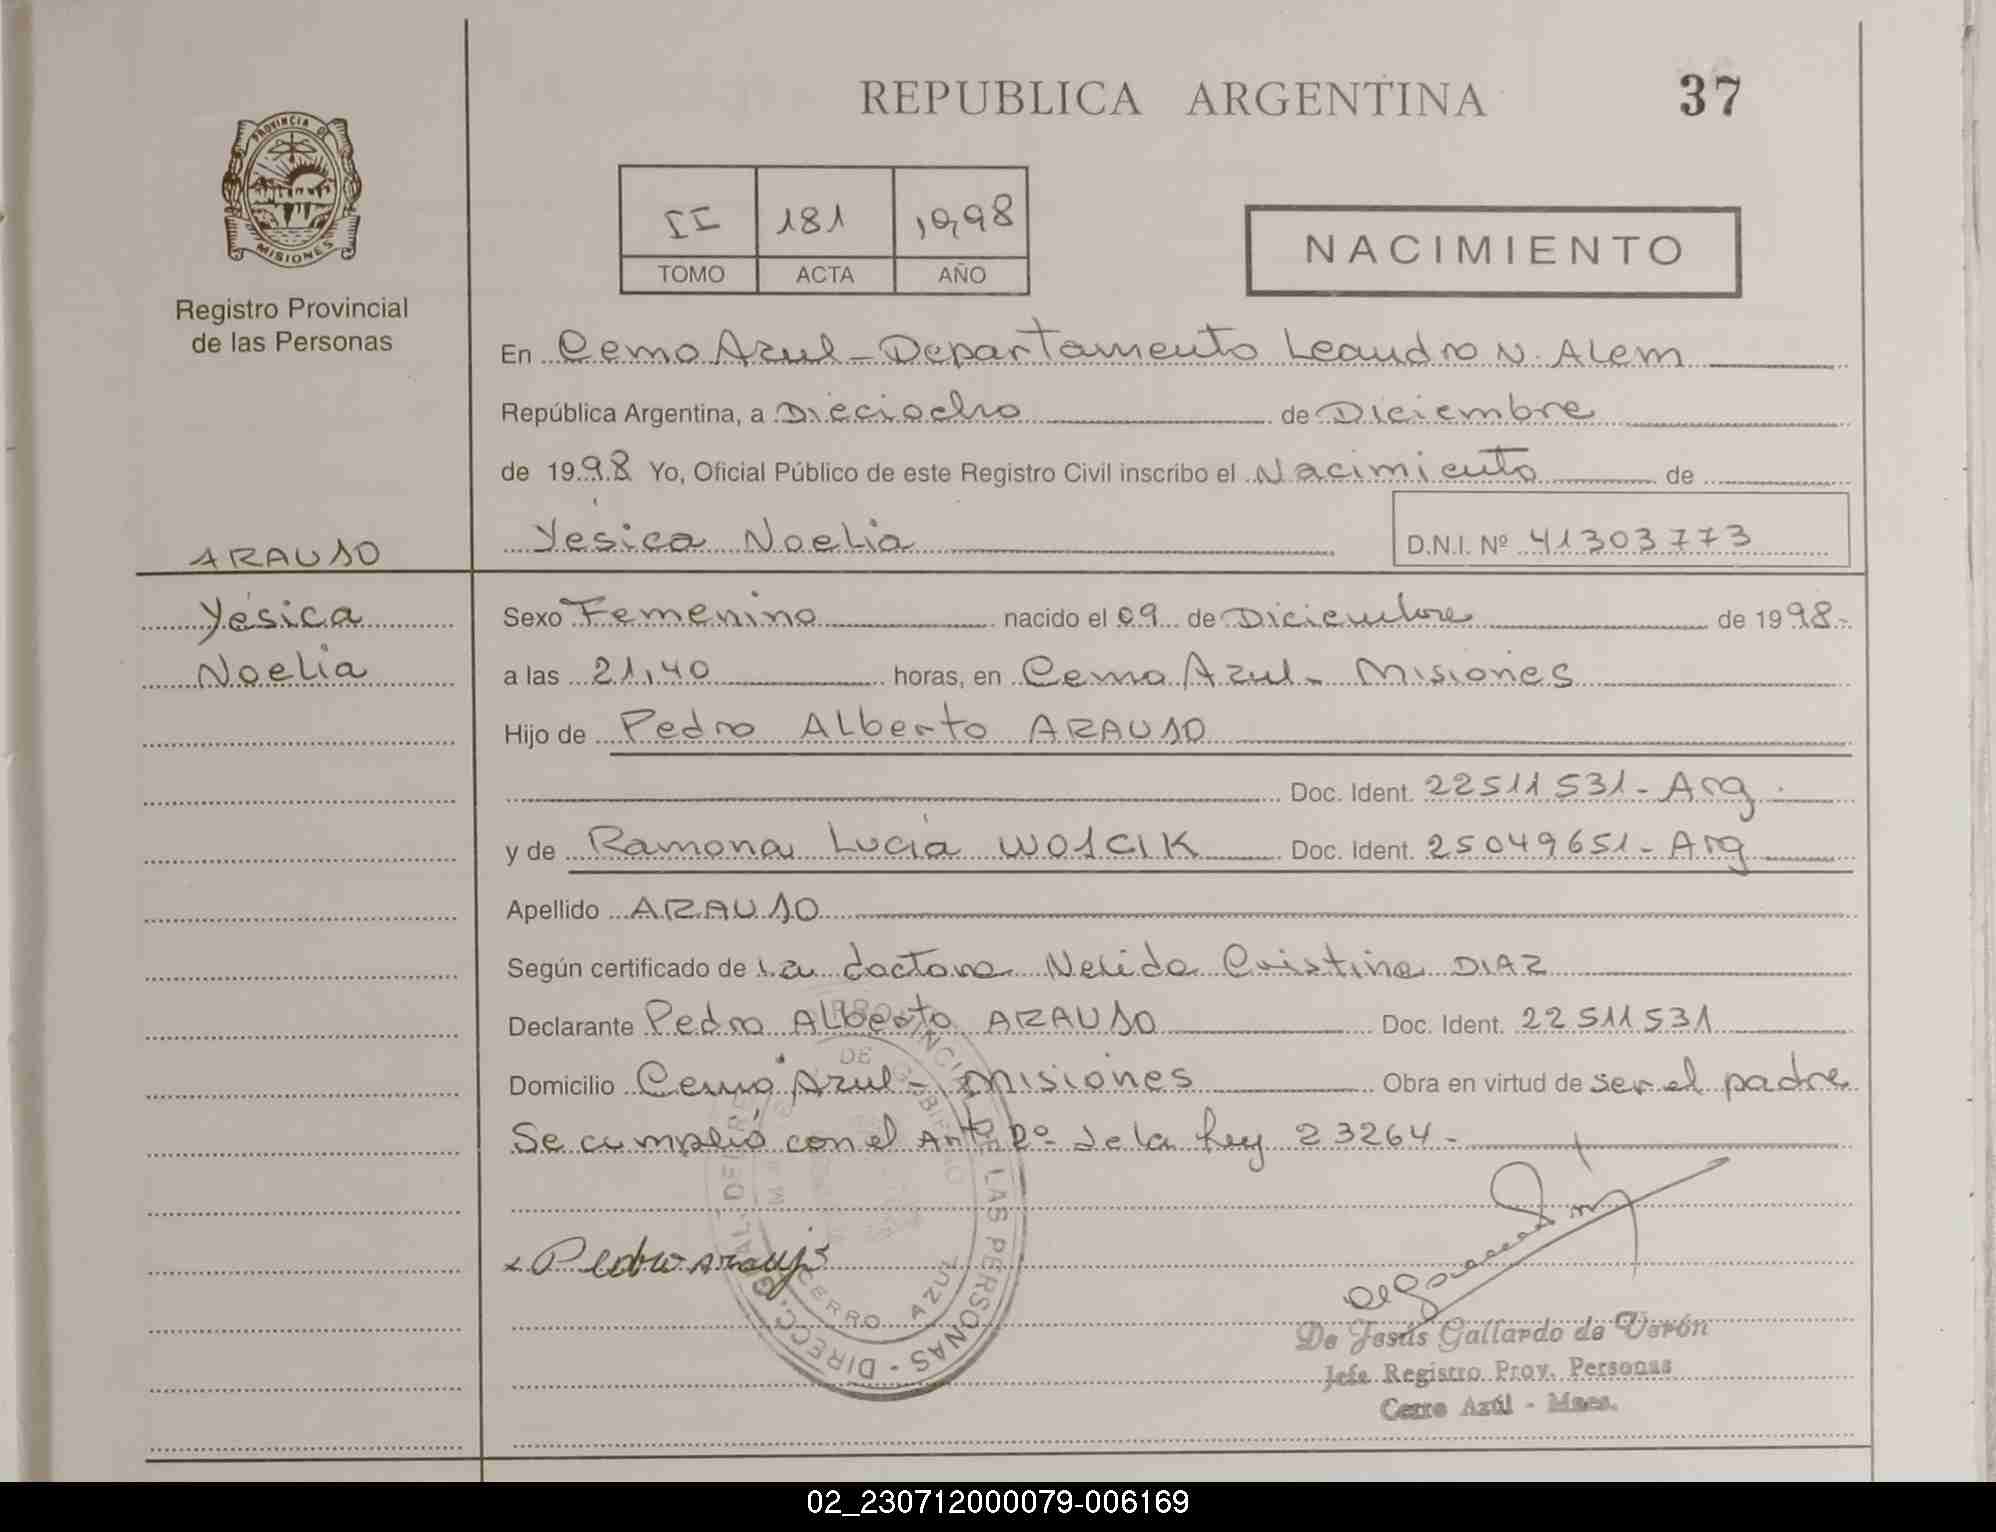 REPUBLICA ARGENTINA 37
PROVINCIA DE
MISIONES
Registro Provincial
de las Personas
II 181 1998
TOMO ACTA AÑO
NACIMIENTO
En Cerro Azul - Departamento Leandro N. Alem
República Argentina, a Dieciocho de Diciembre
de 1998 Yo, Oficial Público de este Registro Civil inscribo el Nacimiento de
Yésica Noelia D.N.I. Nº 41303773
ARAUJO
Yésica
Noelia
Sexo Femenino nacido el 09 de Diciembre de 1998.-
a las 21,40 horas, en Cerro Azul - Misiones
Hijo de Pedro Alberto ARAUJO
Doc. Ident. 22511531 - Arg.
y de Ramona Lucía WOJCIK Doc. Ident. 25049651 - Arg
Apellido ARAUJO
Según certificado de la doctora Nelida Cristina DIAZ
Declarante Pedro Alberto ARAUJO Doc. Ident. 22511531
Domicilio Cerro Azul - Misiones Obra en virtud de ser el padre
Se cumplió con el Art. 2º de la Ley 23264.-
Pedro Araujo
DE LAS PERSONAS - DIRECC.
CERRO AZUL
De Jesús Gallardo de Verón
Jefe Registro Prov. Personas
Cerro Azúl - Mnes.
02_230712000079-006169